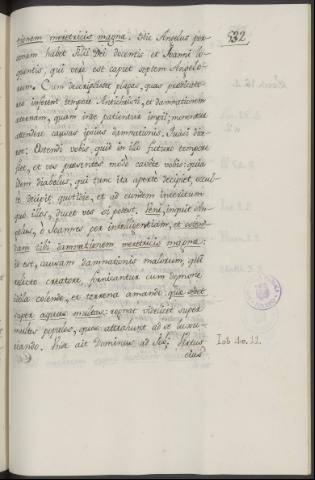 tionem meretricis magnæ. Hic Angelus per-
sonam habet Filii Dei docentis et Joanni lo-
quentis, qui vere est caput septem Angelo-
rum. Cum descripsisset plagas, quas prædicato-
res inferent, tempore Antichristi, et damnationem
æternam, quam inde patiantur impii; monemur
attendere causas ipsius damnationis. Quasi dice-
ret: Ostendi vobis quid in illo futuro tempore
fiet, et vos præsentes modo cavete vobis: quia
idem diabolus, qui tunc ita aperte decipiet, occul-
te decipit quotidie, et ad eundem interitum
quo illos, ducet vos si potest. Veni, inquit An-
gelus, o Joannes per intelligentiam, et osten-
dam tibi damnationem meretricis magnæ:
id est, causam damnationis malorum, qui
relicto creatore, fornicantur cum dæmone
idola colendo, et terrena amando. quæ sedet
super aquas multas: regnat videlicet super
multos populos, quos attrahunt ad se luxu-
riando. Unde ait Dominus ad Job: Virtus
ejus
532
Iob. 40. 11.